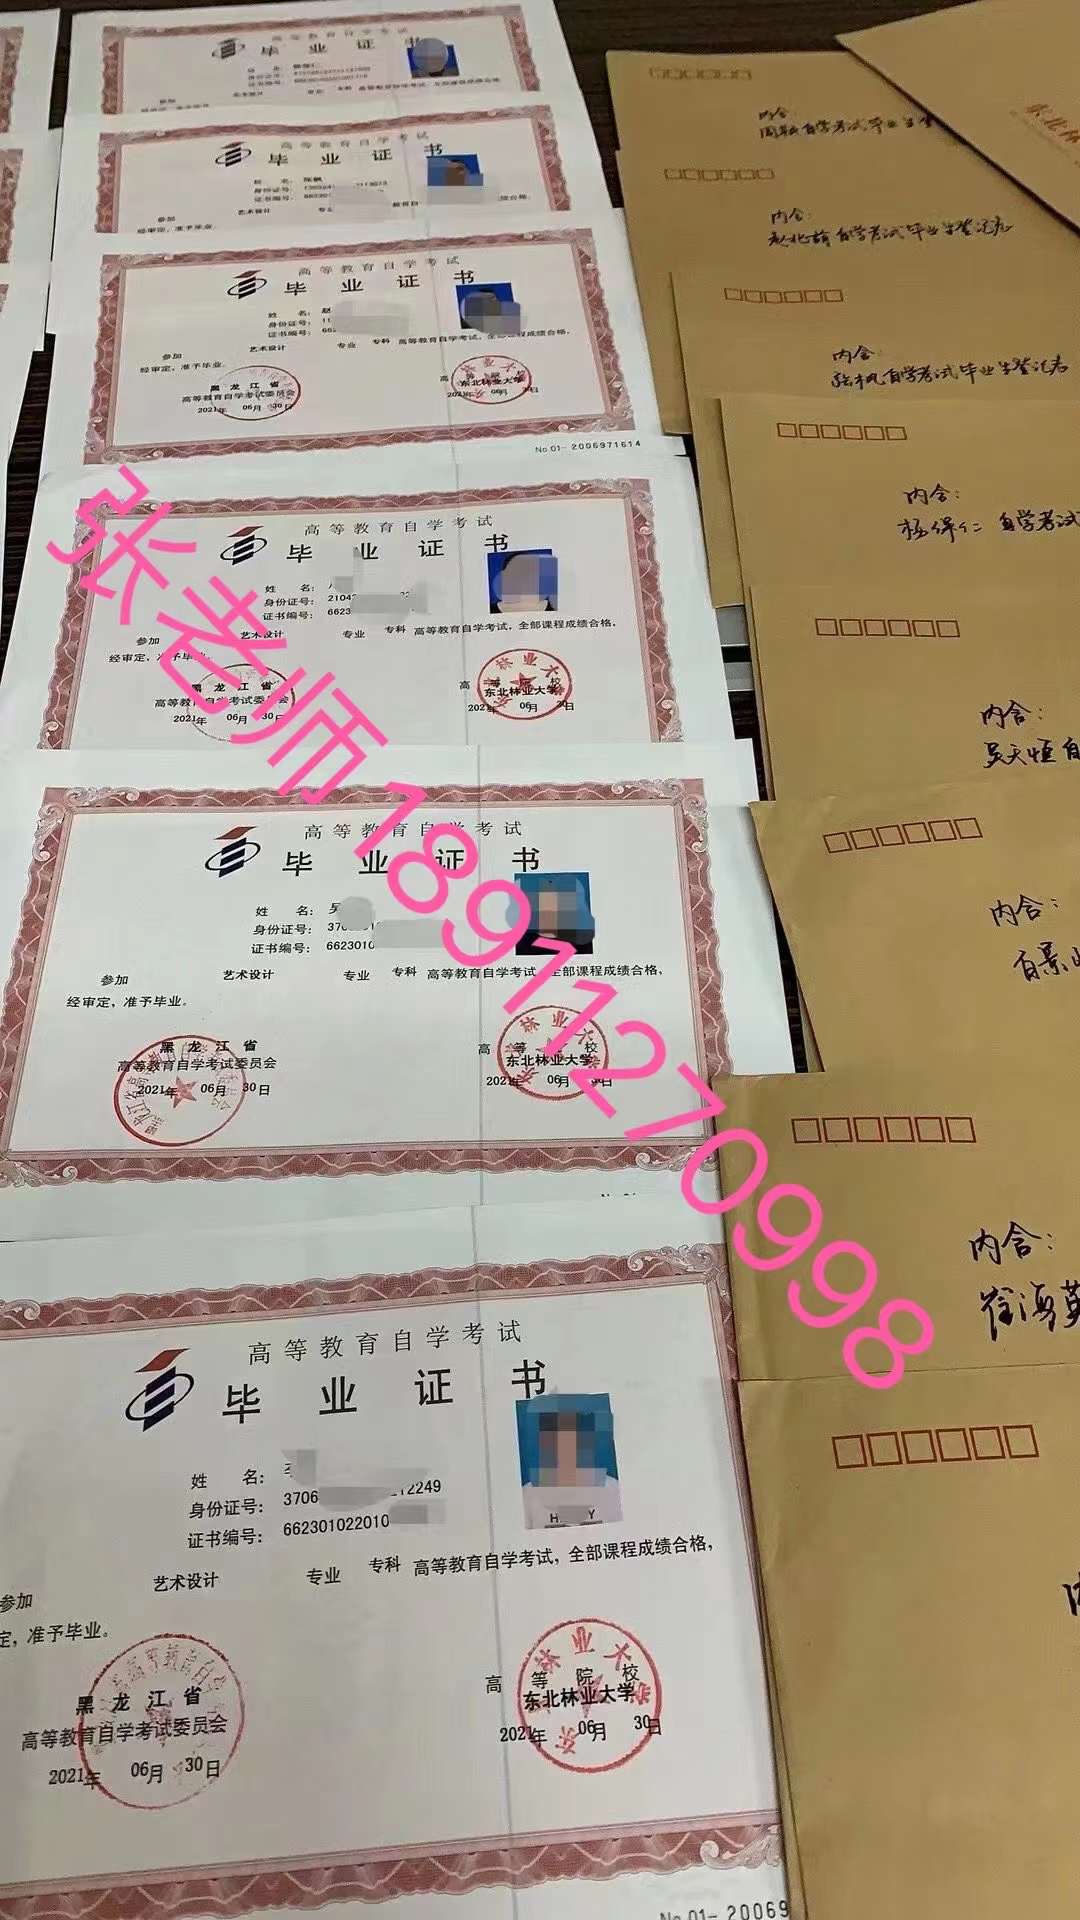 高等教育自学考试
毕业证书
高等教育自学考试
毕业证书
姓 名:
身份证号:
证书编号:
高等教育自学考试
毕业证书
姓 名:
身份证号:
证书编号: 66
参加 艺术设计 专业 专科 高等教育自学考试,全部课程成绩合格,
经审定,准予毕业。
黑龙江省
高等教育自学考试委员会
2021年 06月 30日
东北林业大学
No.01- 2006971614
高等教育自学考试
毕业证书
姓 名:
身份证号: 2104
证书编号: 6623
参加 艺术设计 专业 专科 高等教育自学考试,全部课程成绩合格,
经审定,准予毕业。
黑龙江省
高等教育自学考试委员会
2021年 06月 30日
高等院校
东北林业大学
2021年 06月
高等教育自学考试
毕业证书
姓 名: 吴
身份证号: 370
证书编号: 6623010
参加 艺术设计 专业 专科 高等教育自学考试,全部课程成绩合格,
经审定,准予毕业。
黑龙江省
高等教育自学考试委员会
2021年 06月 30日
高等院校
东北林业大学
2021年 06月 30日
高等教育自学考试
毕业证书
姓 名:
身份证号: 3706 12249
证书编号: 662301022010
参加 艺术设计 专业 专科 高等教育自学考试,全部课程成绩合格,
定,准予毕业。
黑龙江省
高等教育自学考试委员会
2021年 06月 30日
高等院校
东北林业大学
2021年 06月 30日
No.01- 20069
内含:
自学考试毕业生登
内含:
自学考试毕业生登记表
内含:
自学考试毕业生登记表
内含:
杨保仁 自学考试
内含:
吴天恒 自
内含:
内含:
崔海英
东北林
张老师18911270998